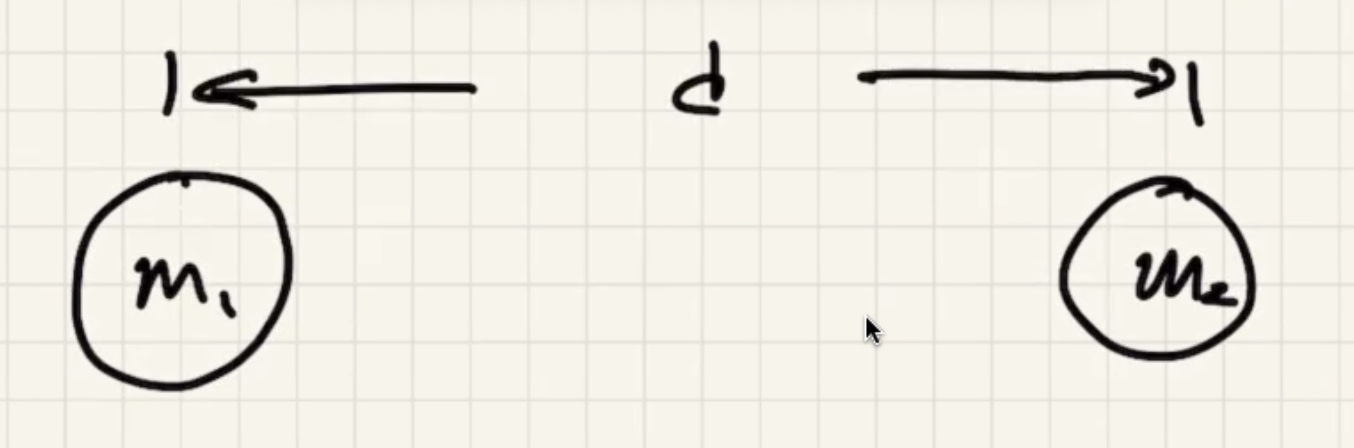 d
m₁ m₂